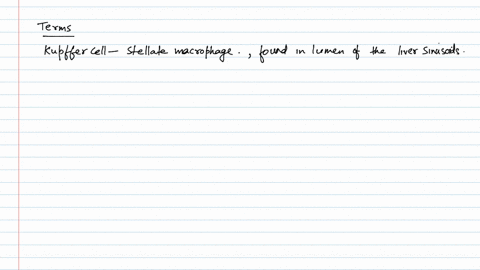 Terms
Kupffer cell — Stellate macrophage. , found in lumen of the liver sinusoids.